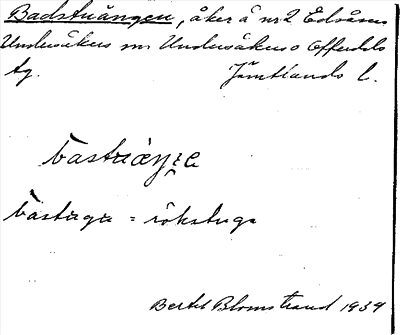 Badstuängen, åker å nr 2 Edsåsen
Undersåkers sn Undersåkers o Offerdals
tg. Jämtlands l.
bastuäŋ:e
bastugu = rökstuga
Bertil Blomstrand 1939